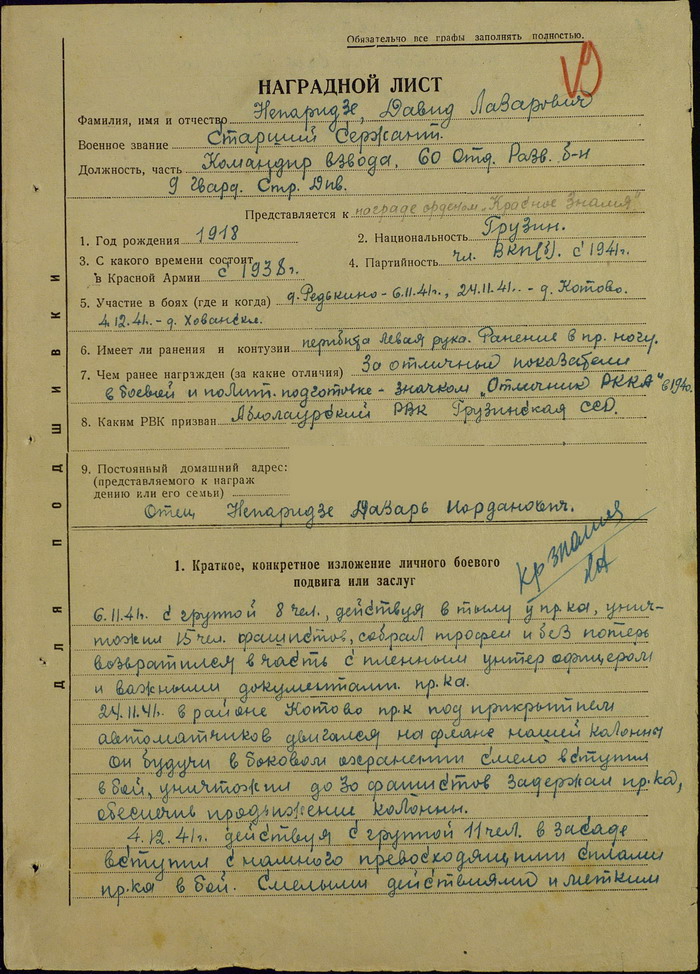 Обязательно все графы заполнять полностью.
НАГРАДНОЙ ЛИСТ
Фамилия, имя и отчество Непаридзе, Давид Лазарович
Военное звание Старший Сержант.
Должность, часть Командир взвода, 60 Отд. Разв. б-н
9 Гвард. Стр. Див.
Представляется к награде орденом „Красное Знамя"
1. Год рождения 1918 2. Национальность Грузин.
3. С какого времени состоит в Красной Армии с 1938г. 4. Партийность чл. ВКП(б). с 1941г.
5. Участие в боях (где и когда) д. Редькино - 6.11.41г., 24.11.41. - д. Котово.
4.12.41. - д. Хованск.
6. Имеет ли ранения и контузии перебита левая рука. Ранение в пр. ногу.
7. Чем ранее награжден (за какие отличия) За отличный показатели
в боевой и полит. подготовке - значком „Отличник РККА" в 1940.
8. Каким РВК призван РВК Грузинская ССР.
9. Постоянный домашний адрес:
(представляемого к награж
дению или его семьи)
Отец Непаридзе Лазарь Иорданович.
Кр знамя
ДЛЯ ПОДШИВКИ
1. Краткое, конкретное изложение личного боевого
подвига или заслуг
6.11.41г. с группой 8 чел., действуя в тылу у пр-ка, унич-
тожил 15 чел. фашистов, собрал трофеи и без потерь
возвратился в часть с пленным унтер офицером
и важными документами пр-ка.
24.11.41. в районе Котово пр-к под прикрытием
автоматчиков двигался на фланг нашей колонны
Он будучи в боковом охранении смело вступил
в бой, уничтожил до 30 фашистов задержал пр-ка,
обеспечив продвижение колонны.
4.12.41г. действуя с группой 11 чел. в засаде
вступил с намного превосходящими силами
пр-ка в бой. Смелыми действиями и метким